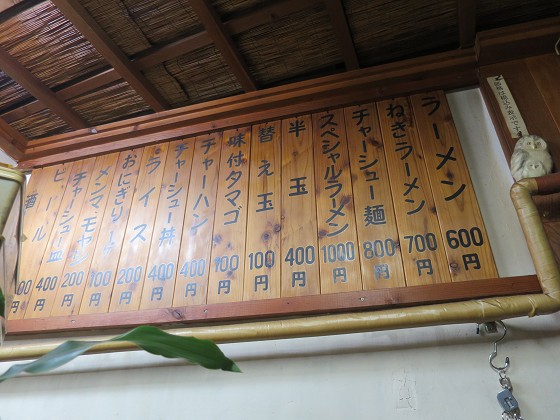 ラーメン 600円
ねぎラーメン 700円
チャーシュー麺 800円
スペシャルラーメン 1000円
半玉 400円
替え玉 100円
味付タマゴ 100円
チャーハン 400円
チャーシュー丼 400円
ライス 200円
おにぎり 100円
メンマモヤシ 200円
チャーシュー皿 400円
ビール
酒 00円